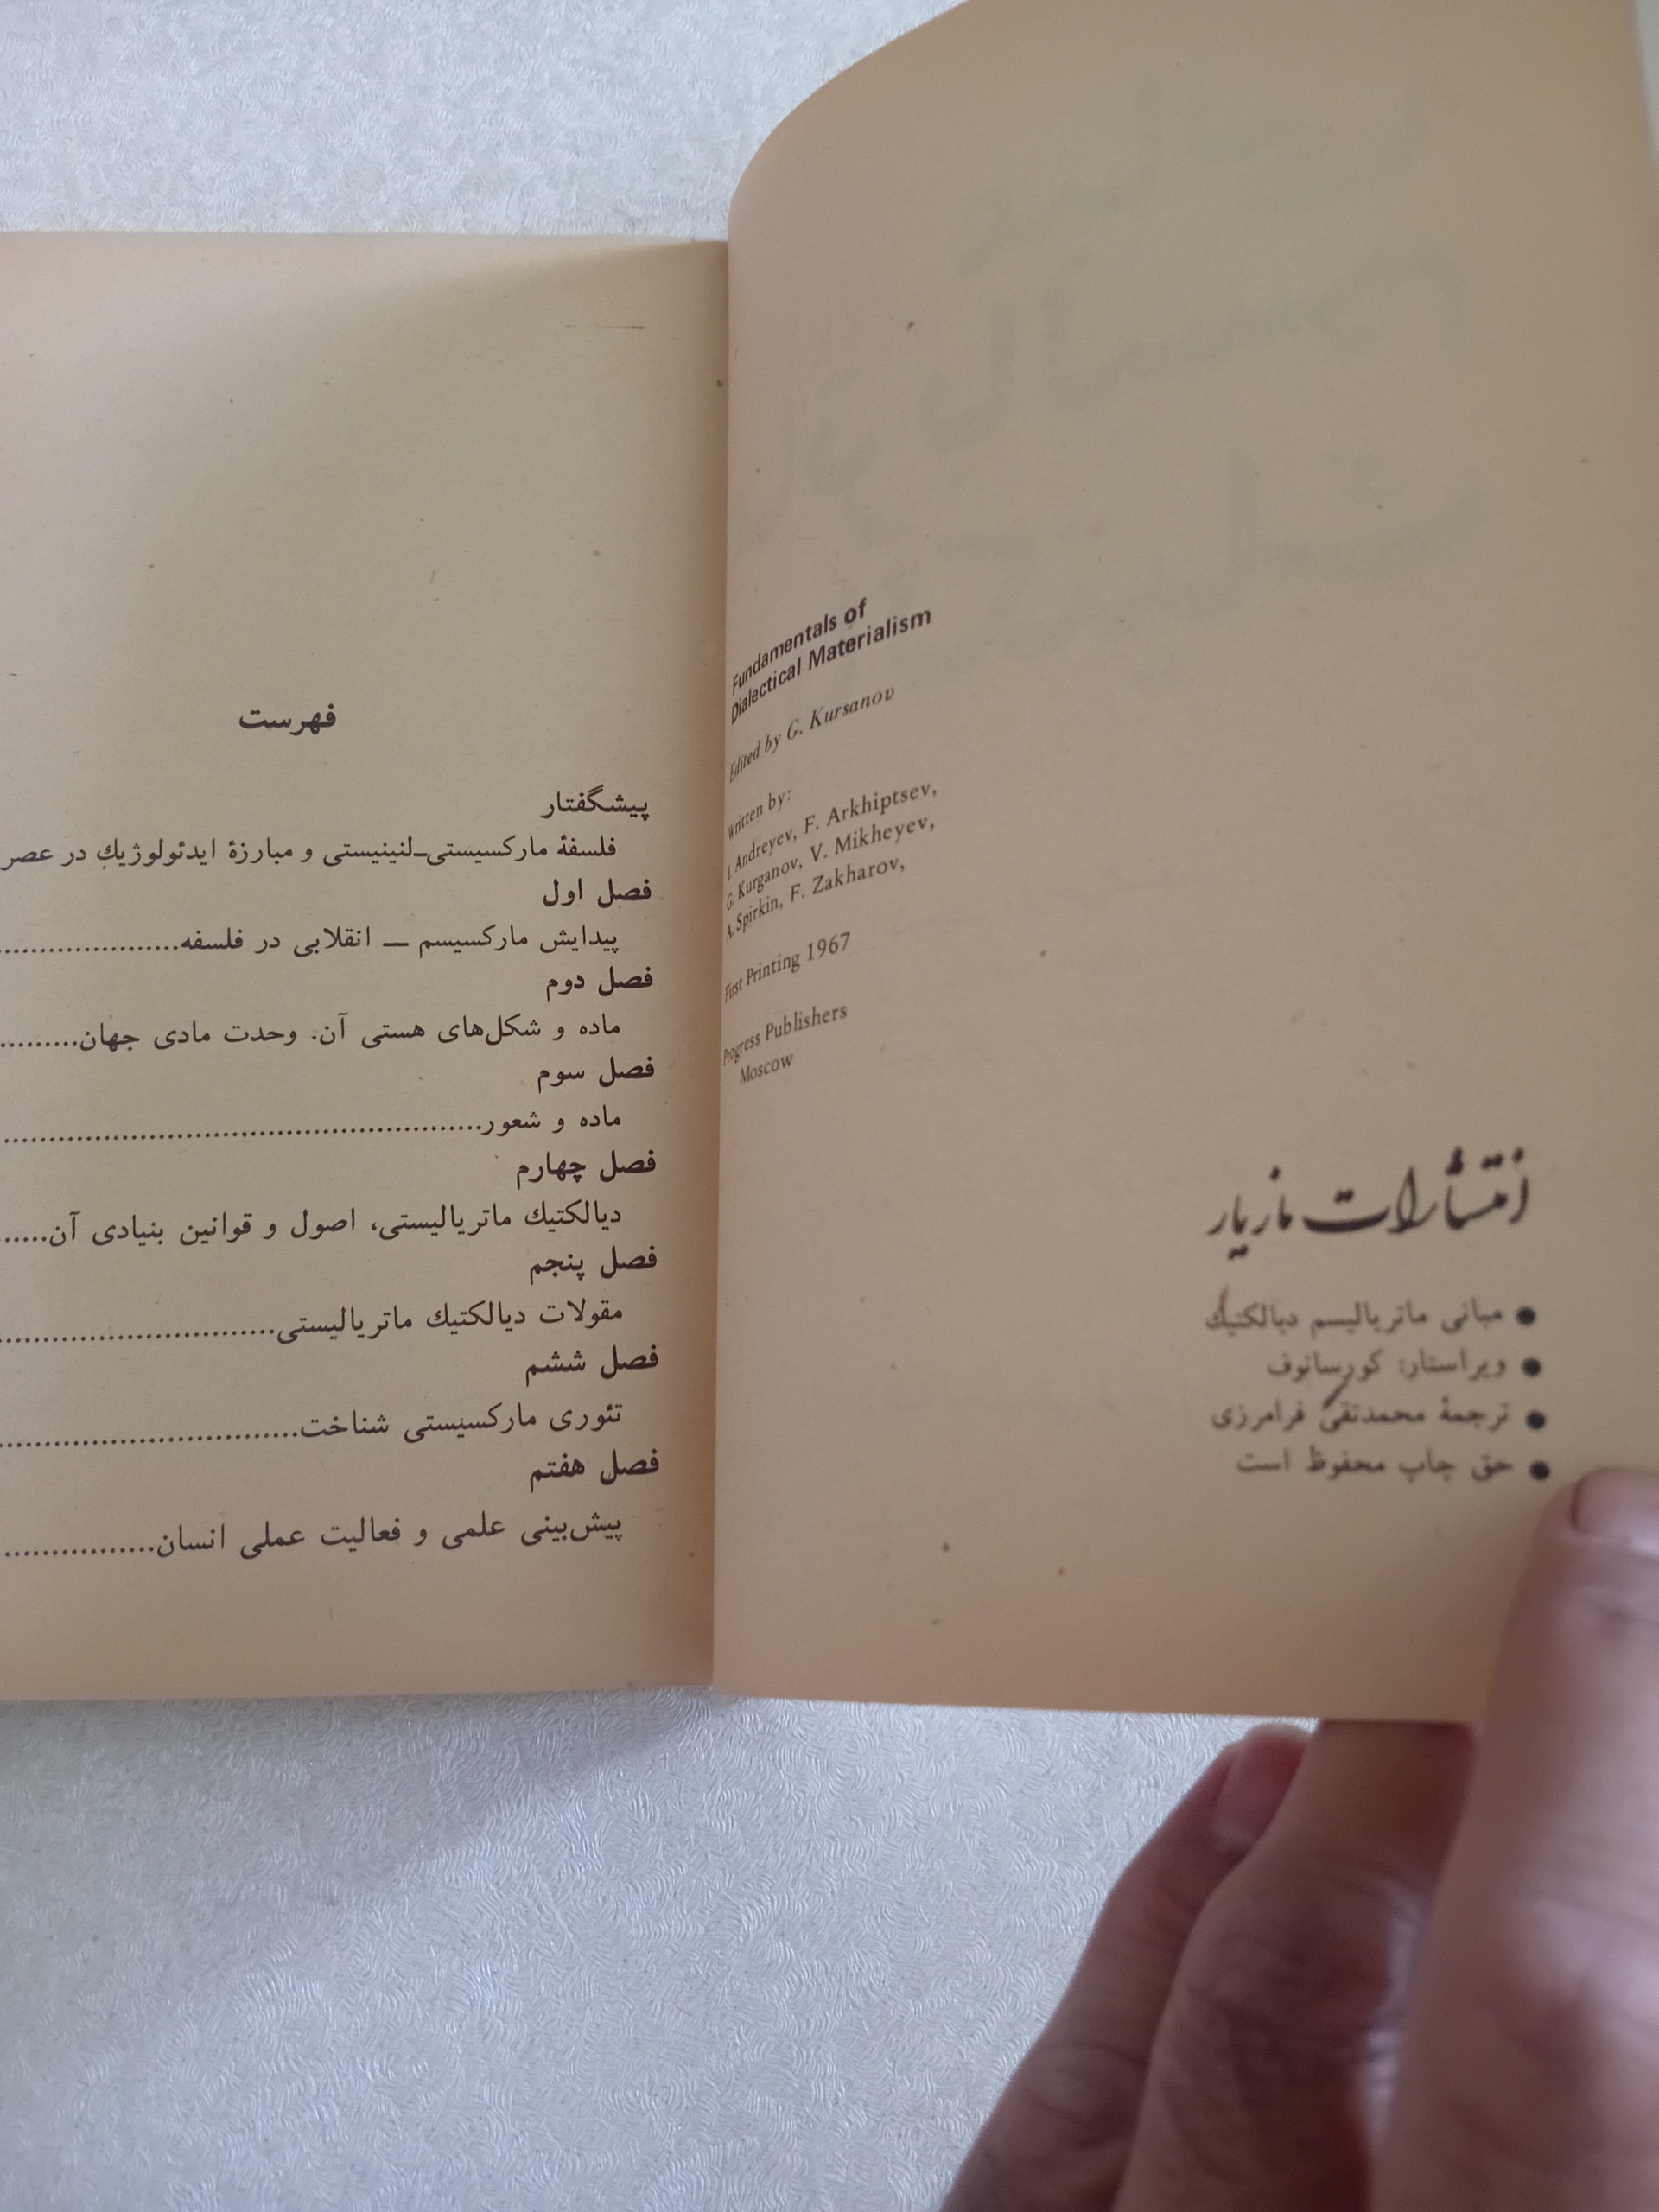 Fundamentals of
Dialectical Materialism
Edited by G. Kursanov
Written by:
I. Andreyev, F. Arkhiptsev,
G. Kurganov, V. Mikheyev,
A. Spirkin, F. Zakharov,
First Printing 1967
Progress Publishers
Moscow
انتشارات مازیار
● مبانی ماتریالیسم دیالکتیك
● ویراستار: کورسانوف
● ترجمهٔ محمدتقی فرامرزی
● حق چاپ محفوظ است
فهرست
پیشگفتار
فلسفهٔ مارکسیستی–لنینیستی و مبارزهٔ ایدئولوژیك در عصر
فصل اول
پیدایش مارکسیسم — انقلابی در فلسفه.....................
فصل دوم
ماده و شکل‌های هستی آن. وحدت مادی جهان..........
فصل سوم
ماده و شعور..................................................
فصل چهارم
دیالکتیك ماتریالیستی، اصول و قوانین بنیادی آن......
فصل پنجم
مقولات دیالکتیك ماتریالیستی.............................
فصل ششم
تئوری مارکسیستی شناخت................................
فصل هفتم
پیش‌بینی علمی و فعالیت عملی انسان.................